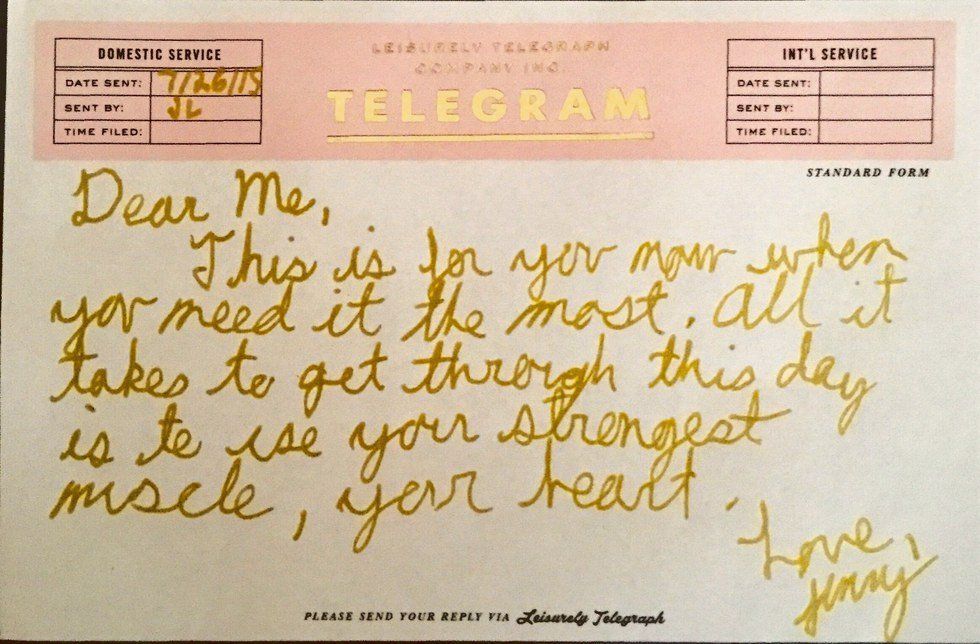 DOMESTIC SERVICE
DATE SENT: 7/26/15
SENT BY: JL
TIME FILED:
LEISURELY TELEGRAPH
COMPANY INC.
TELEGRAM
INT'L SERVICE
DATE SENT:
SENT BY:
TIME FILED:
STANDARD FORM
Dear Me,
This is for you now when
you need it the most. All it
takes to get through this day
is to use your strongest
muscle, your heart.
Love,
Jenny
PLEASE SEND YOUR REPLY VIA Leisurely Telegraph